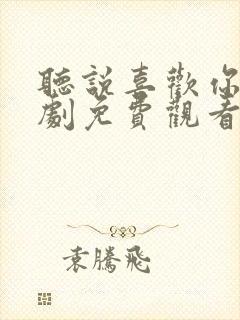 聽說喜歡你
劇免費觀看
袁騰飛